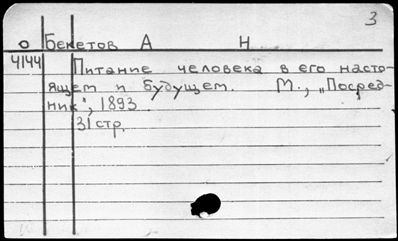 3
О Бекетов А Н
4144 Питание человека в его насто-
ящем и будущем. М., „Посред-
ник", 1893
31 стр.